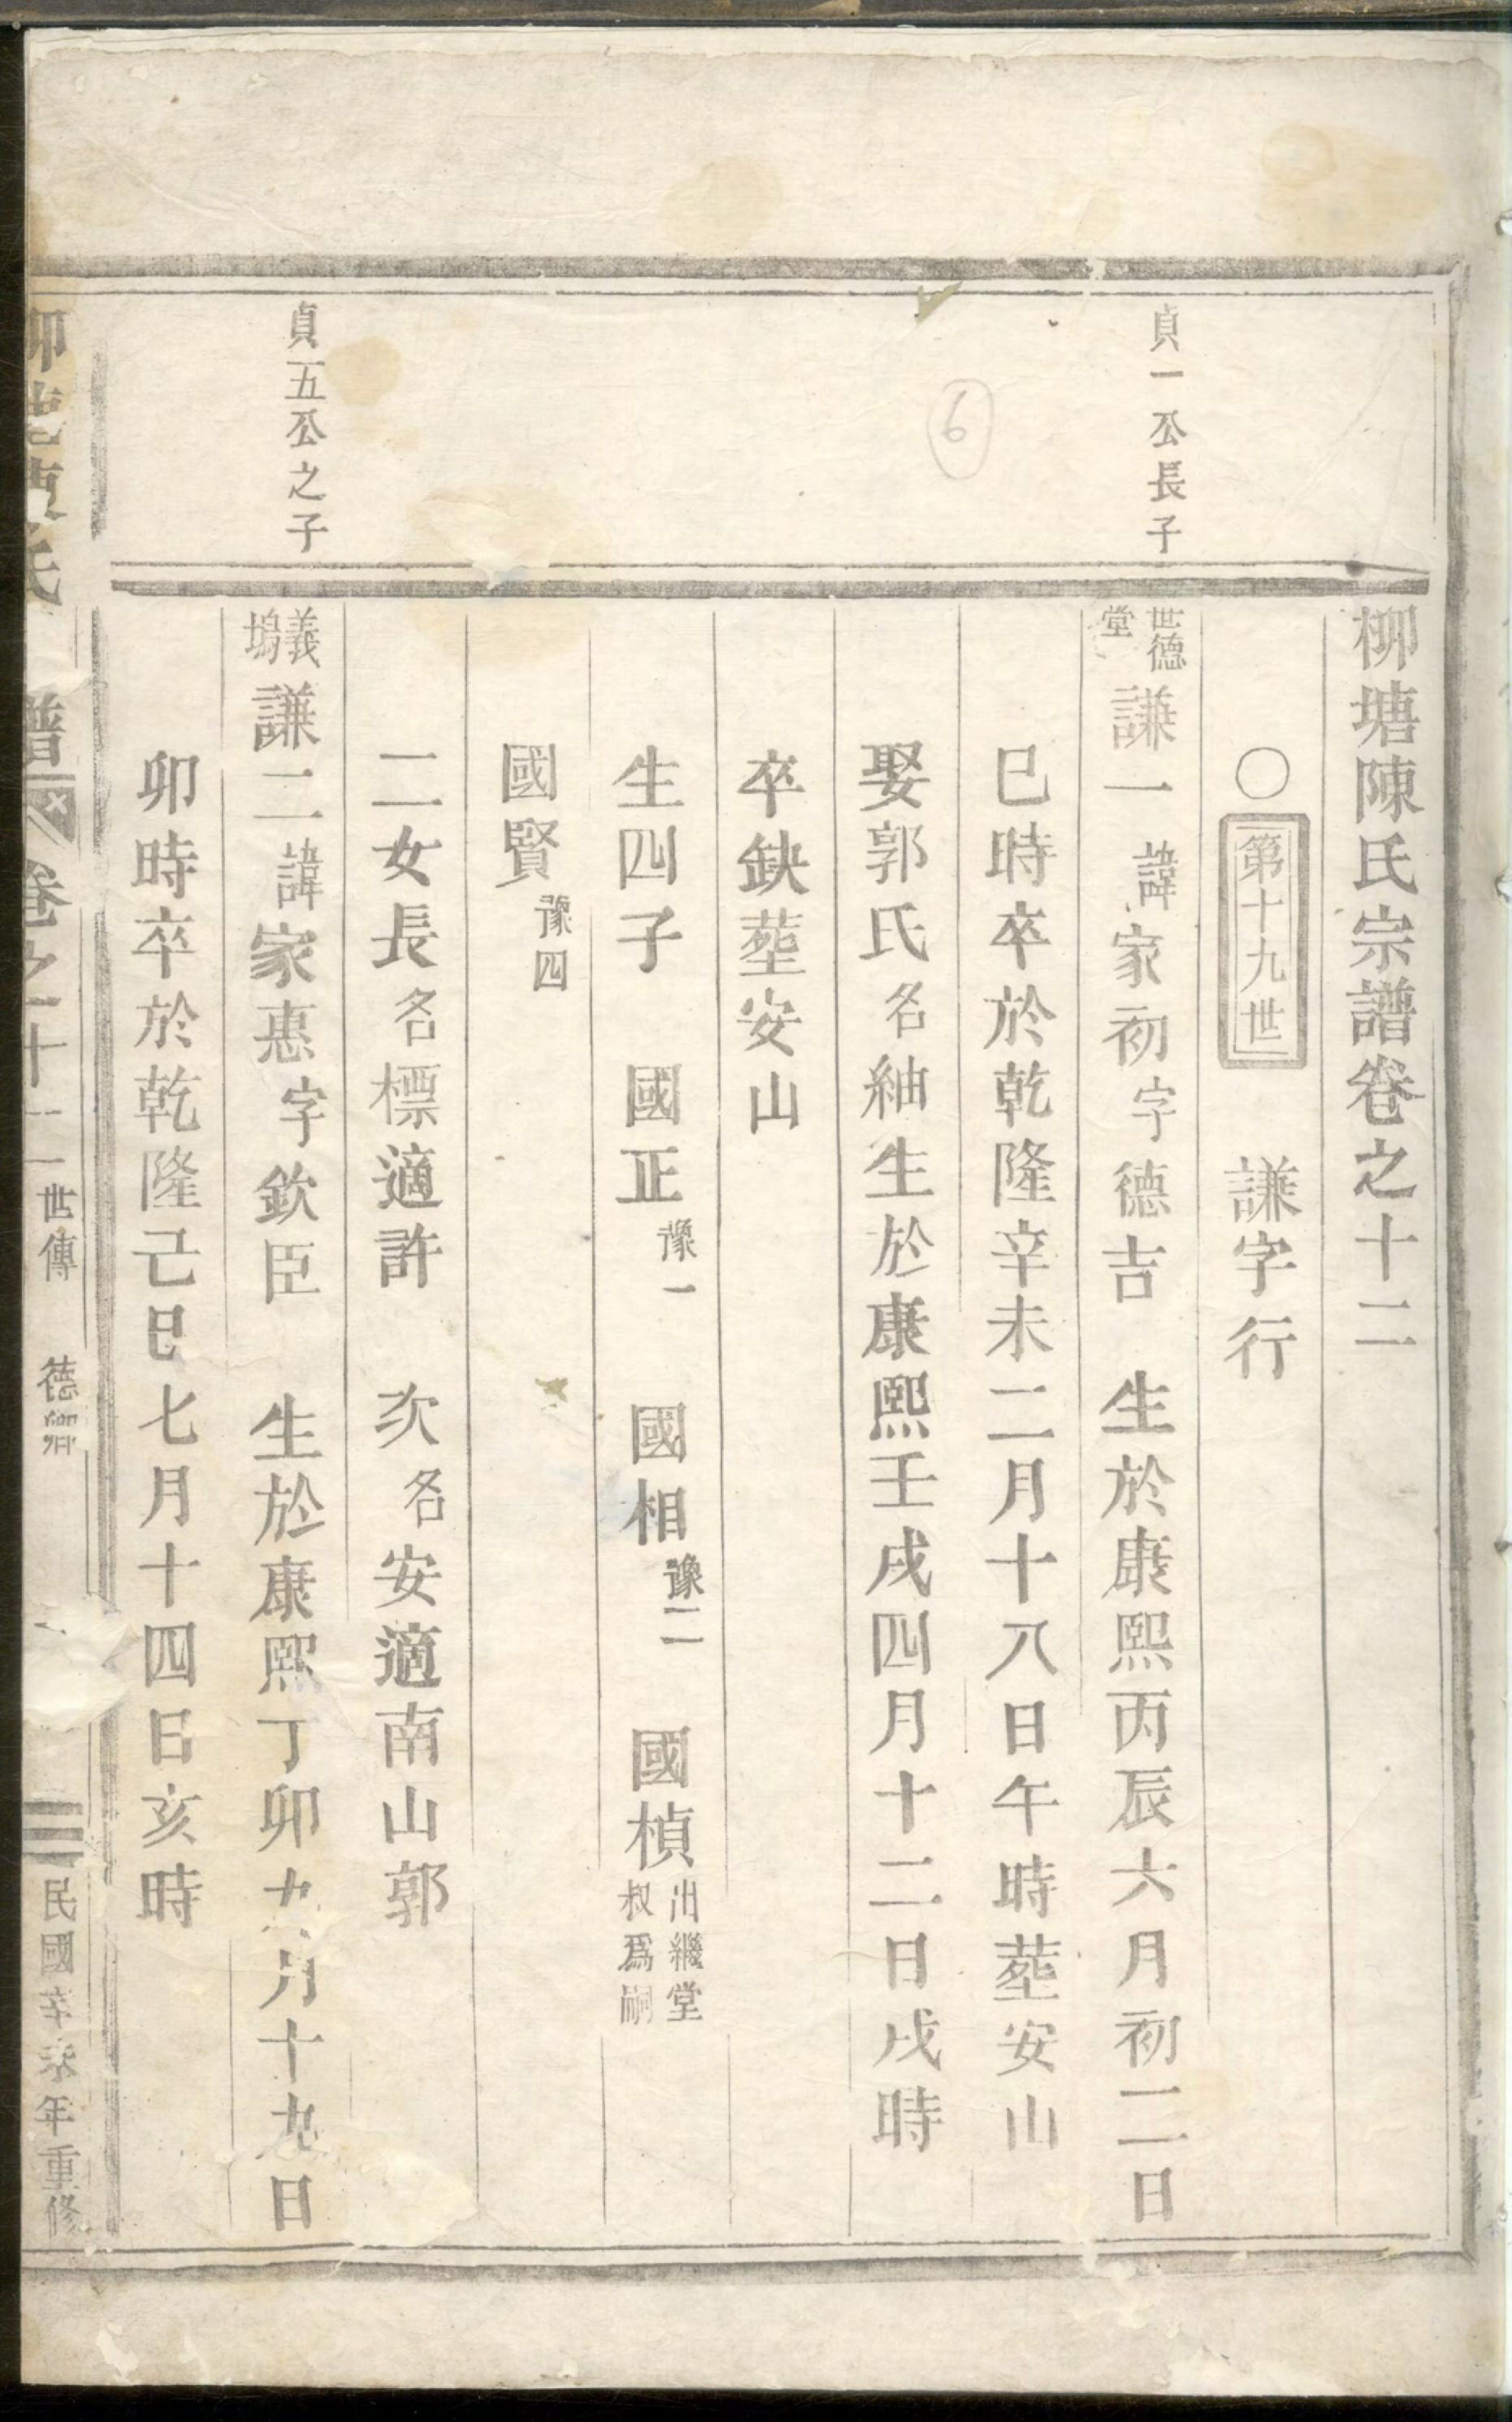 柳塘陳氏宗譜卷之十二
〇第十九世 謙字行
貞一公長子
世德堂謙一諱家初字德吉 生於康熙丙辰六月初二日
巳時卒於乾隆辛未二月十八日午時塟安山
娶郭氏名紬生於康熙壬戌四月十二日戌時
6
卒缺塟安山
生四子 國正豫一 國相豫二 國楨出繼堂叔爲嗣
國賢豫四
二女長名標適許 次名安適南山郭
貞五公之子
義塢謙二諱家惠字欽臣 生於康熙丁卯九月十九日
卯時卒於乾隆己巳七月十四日亥時
柳塘陳氏 譜 卷之十二 世傳 德卿 一 民國辛未年重修